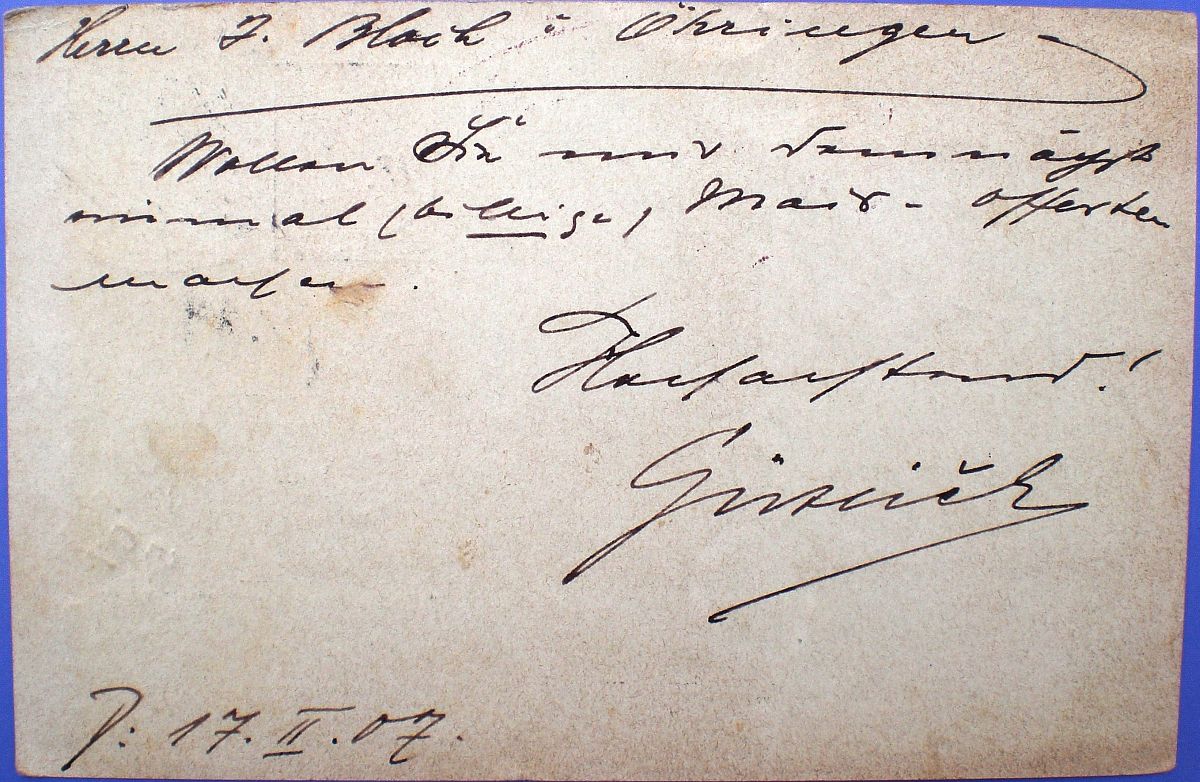 Herrn J. Bloch i Öhringen –
Wollen Sie mir demnächst
einmal (billige) Mais- Offerten
machen.
Hochachtend!
P: 17. II. 07.